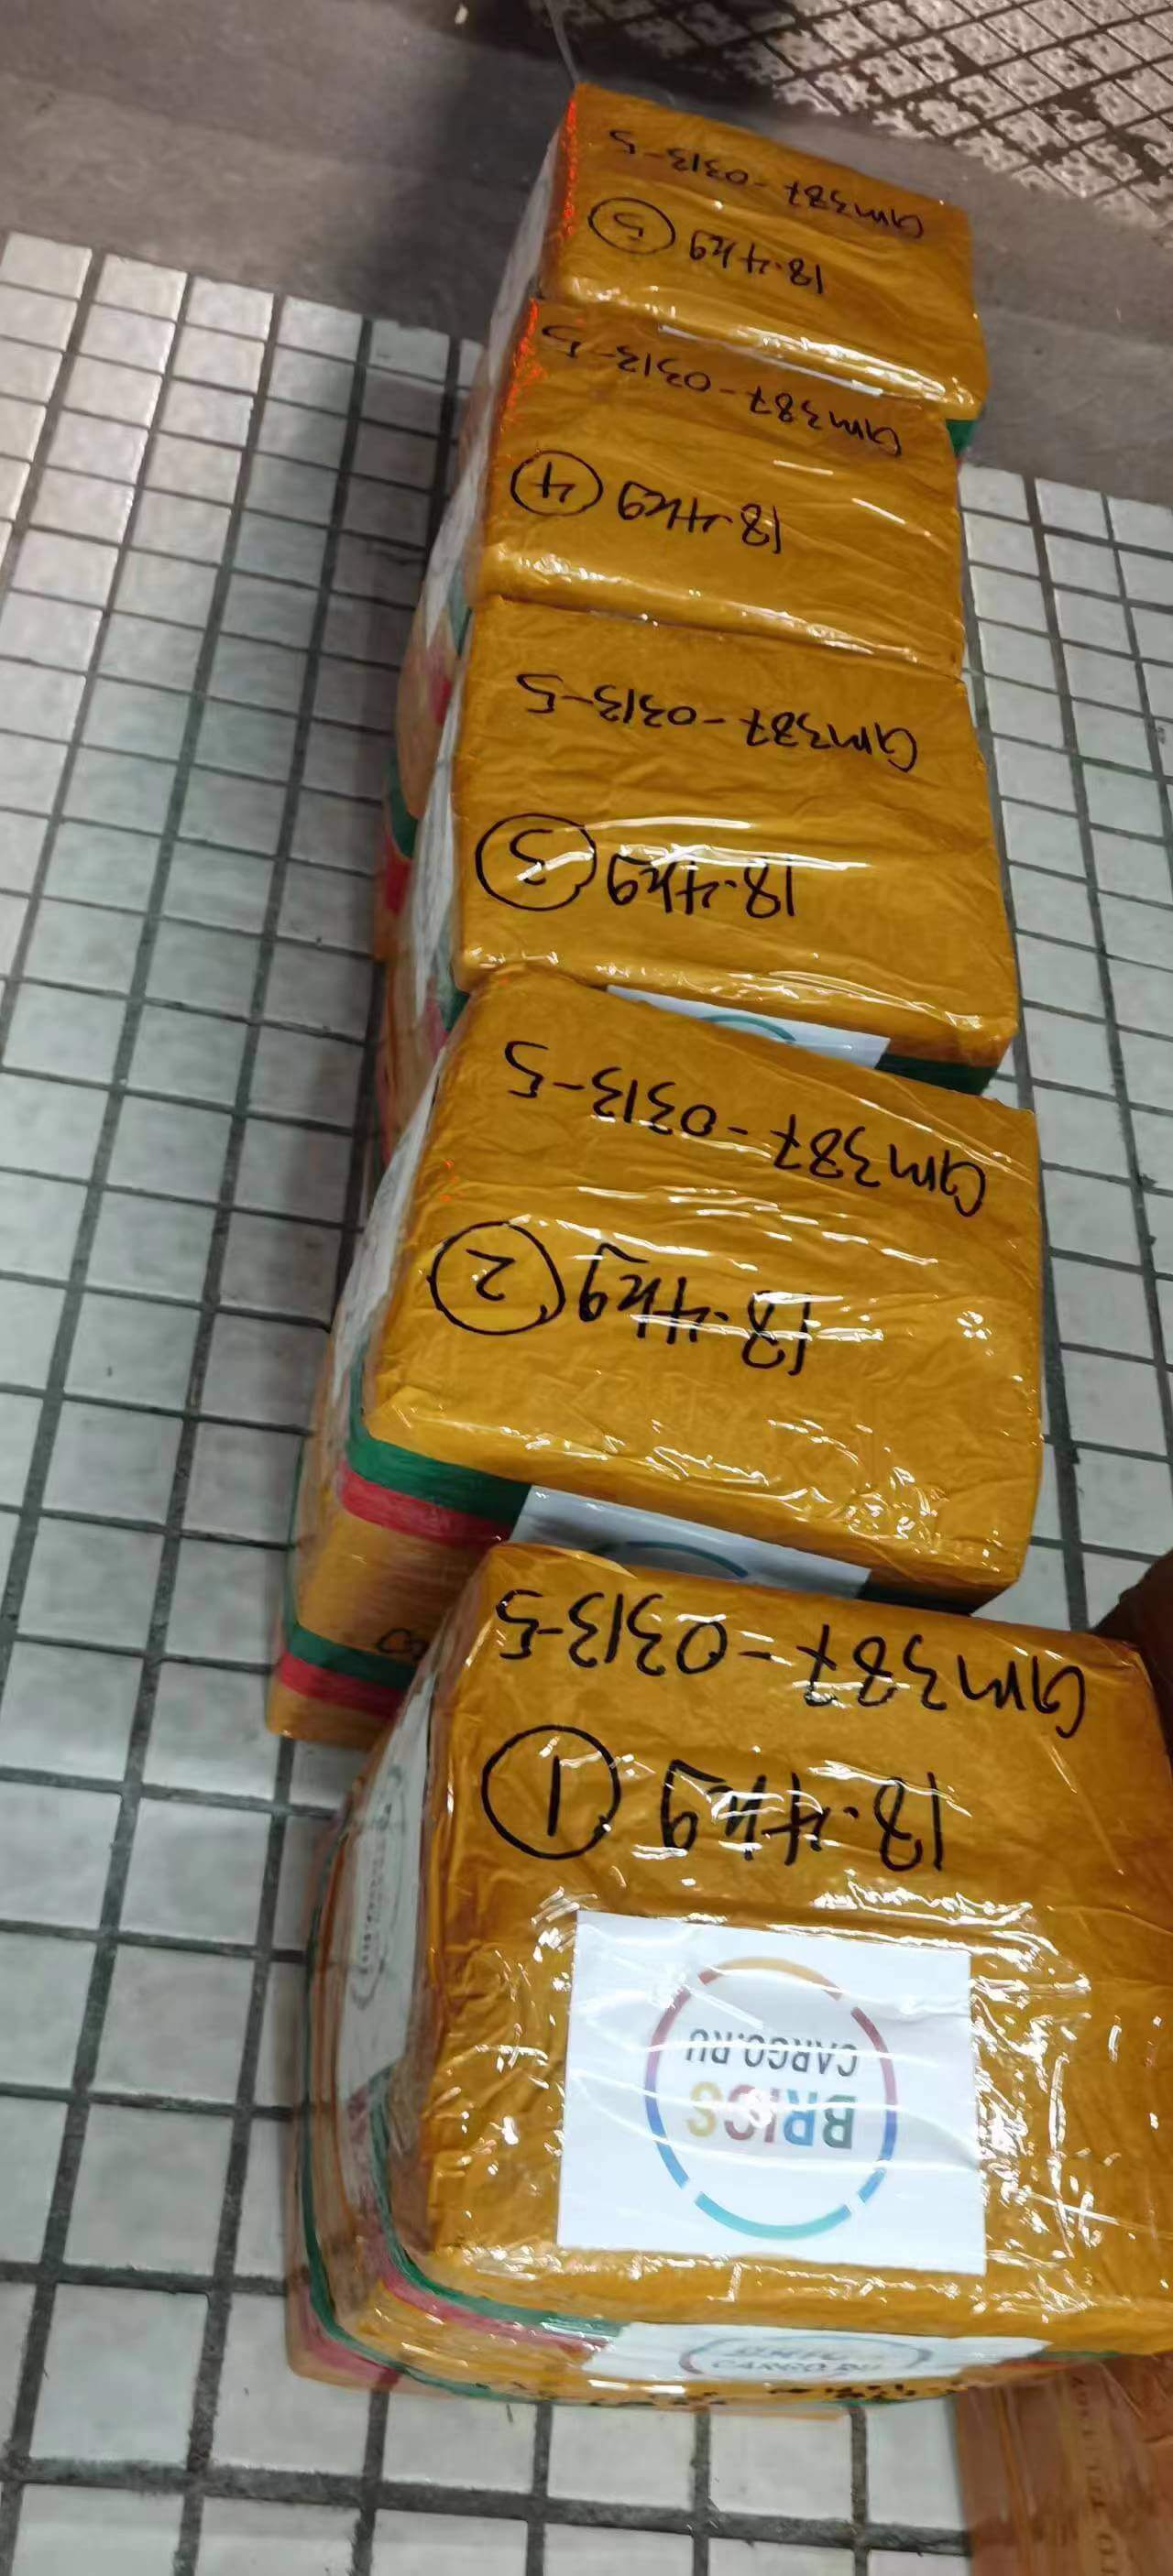 GM387-0313-5
18.4kg ⑤
GM387-0313-5
18.4kg ④
GM387-0313-5
18.4kg ③
GM387-0313-5
18.4kg ②
GM387-0313-5
18.4kg ①
BRICS
CARGO.RU
BRICS
CARGO.RU